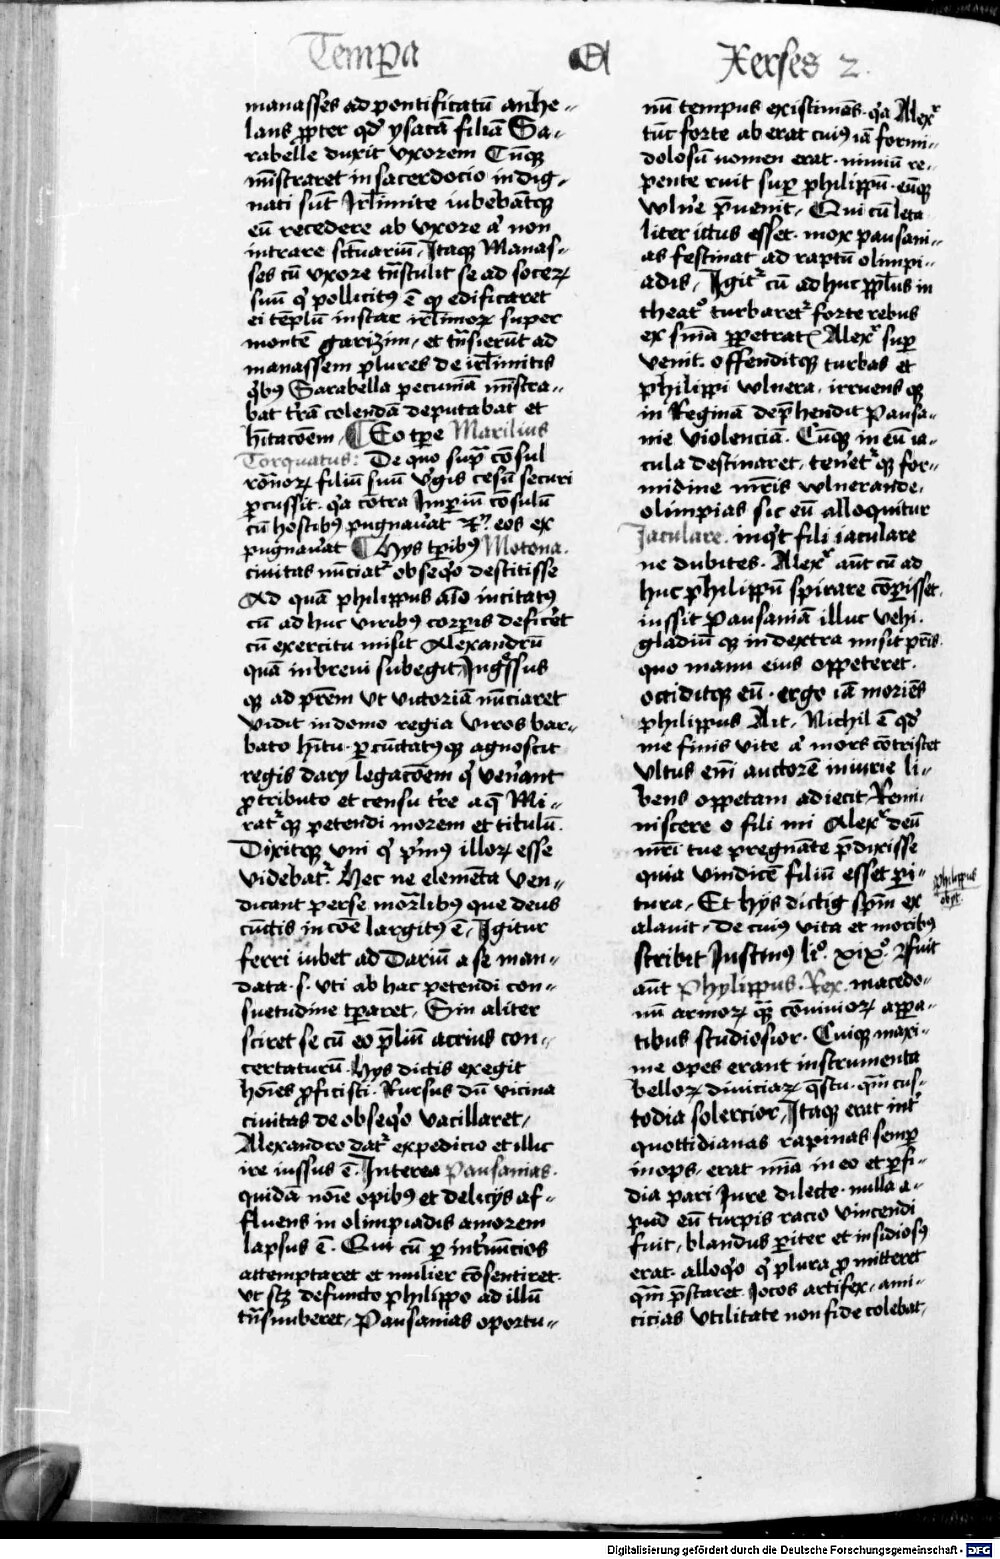 Temꝑa
Xerses 2.
manasses ad pontificatū anhe-
lans ꝓpter qđ ysacā filiā Sa-
rabelle duxit vxorem Cūqꝫ
mīstraret in sacerdocio indig-
nati sūt Jrl̄imite iubebātqꝫ
eū recedere ab vxore aᷓ non
intrare sctuariū. Itaqꝫ Manas-
ses cū vxore trāstulit se ad socerꝝ
suū qͥ pollicitꝰ ē qꝫ edificaret
ei tēplū instar irl̄imorꝝ super
monte garizim, et trāsierūt ad
manassem plures de irl̄imitis
qͥbꝰ Sarabella pecuniā mīstra-
bat trā colendā deputabat et
hītacōem, ¶ Eo tp̄e Marilius
Torquatus: De quo supͣ cōsul
rōnorꝝ filiū suū vgis cesū securi
ꝑcussit. qͥa cōtra Imperiū cōsulū
cū hostibꝰ pugnauat ⁊ eos ex
pugnauat ¶ Hys tpībꝰ Motona.
ciuitas nūciatᷣ obseqͦ destitisse
Ad quā philippus aīo incitatꝰ
cū adhuc viribꝰ corꝑis deficēt
cū exercitu misit Alexandrū
quā in breui subegit, Ingͤssus
qꝫ ad prēm vt victoriā nūciaret
vidit in domo regia viros bar-
bato hītu. ꝑcūctatꝰqꝫ agnoscit
regis dary legacōem qͥ venāant
ꝓ tributo et censu tre aqꝫ Mi-
ratᷣqꝫ petendi morem et titulū.
Dixitqꝫ vni qͥ pͥmꝰ illorꝝ esse
videbatᷣ. Hec ne elemēta ven-
dicant perse morlibꝰ que deus
cūctis in cōe largitꝰ ē, Igitur
ferri iubet ad Dariū a se man-
data. s. vti ab hac petendi con-
suetudine tꝑaret, Sin aliter
sciret se cū eo p̄liū acrius con-
certaturū. Hys dictis exegit
hoīes ꝓficisti. Rursus dū vicina
ciuitas de obseqͦ vacillaret,
Alexandro datᷣ expedicio et illuc
ire iussus ē. Interea Pausanias.
quidā noīe opibꝰ et delicijs af-
fluens in olimpiadis amorem
lapsus ē. Qui cū ꝑ intnūcios
attemptaret et mulier cōsentiret.
vt scꝫ defuncto philippo ad illū
trāsnuberet, Pausanias oportu-
nū tempus existimās. qͥa Alexᷣ
tūc forte ab erat cuiꝰ iā formi-
dolosū nomen erat. nimiū re-
pente ruit suꝑ philippū. eūqꝫ
vlne p̄uenit, Qui cū leta
liter ictus esset. mox pausani-
as festinat ad raptū olimpi-
adis, Igitᷣ cū adhuc ppl̄us in
theatͦ turbaretᷣ forte rebus
ex snīa ꝑpetratꝭ Alexᷣ suꝑ
venit. offenditqꝫ turbas et
philippi vlnera. irruens qꝫ
in Reginā dep̄hendit Pausa-
nie violenciā. Cūqꝫ in eū ia-
cula destinaret, tenetᷣqꝫ for-
midine mris vlnerande.
olimpias sic eū alloquitur
Iaculare. inqͥt fili iaculare
ne dubites. Alexᷣ aūt cū ad
huc philippū spirare cōpisset.
iussit pausaniā illuc vehi.
gladiū qꝫ indextra misit pris.
quo manu eius oppeteret.
occiditqꝫ eū. ergo iā moriēs
philippus Ait, Nichil ē qđ
me finis vite aᷓ mors cōtristet
vltus enī auctorē iniurie li-
bens oppetam adiecit, Remi-
niscere o fili mi Alexᷣ deū
mri tue pregnāte p̄dixisse
quia vindicē filiū esset ꝑi-
tura, Et hijs dictis sp̄m ex
alauit, De cuiꝰ vita et moribꝰ
philippus
obijt.
scribit Iustinꝰ liͦ. xixͦ. Fuit
aūt Phylippus. Rex. macedo-
nū armorꝝ qͣꝫ cōuiuiorꝝ appa-
tibus studiosior. Cuiqꝫ maxi-
me opes erant instrumenta
bellorꝝ diuiciarꝝ q̄stu. qͣm cus-
todia solercior, Itaqꝫ erat int
quottidianas rapinas semꝑ
inops, erat mīa in eo et ꝑfi-
dia pari Jure dilecte. nulla a-
pud eū turpis racio vincendi
fuit, blandus ꝑiter et insidiosꝰ
erat. alloqͦ qͥ plura ꝓmitteret
qͣm p̄staret. Jocos artifex, ami-
cicias vtilitate non fide colebat,
Digitalisierung gefördert durch die Deutsche Forschungsgemeinschaft - DFG